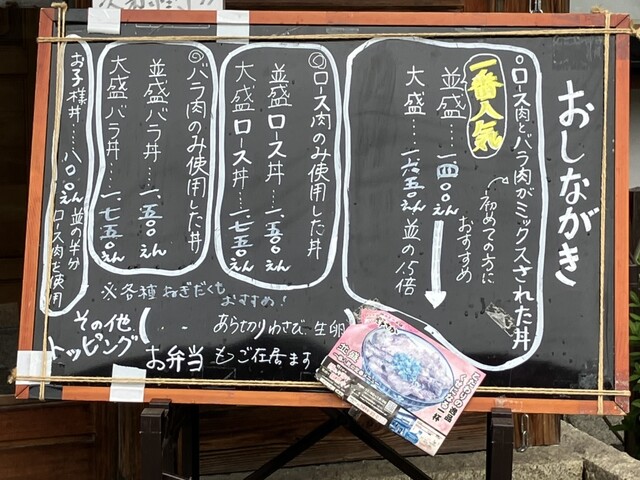 おしながき
○ロース肉とバラ肉がミックスされた丼
一番人気
初めての方に
おすすめ
並盛…一、四〇〇えん
大盛…一、六五〇えん 並の1.5倍
◎ロース肉のみ使用した丼
並盛ロース丼…一、五〇〇えん
大盛ロース丼…一、七五〇えん
◎バラ肉のみ使用した丼
並盛バラ丼…一、五〇〇えん
大盛バラ丼…一、七五〇えん
お子様丼……八〇〇えん 並の半分
ロース肉を使用
※各種 ねぎだくも
おすすめ!
その他
トッピング
(‥ あらぎりわさび、生卵
お弁当 もご在居ます